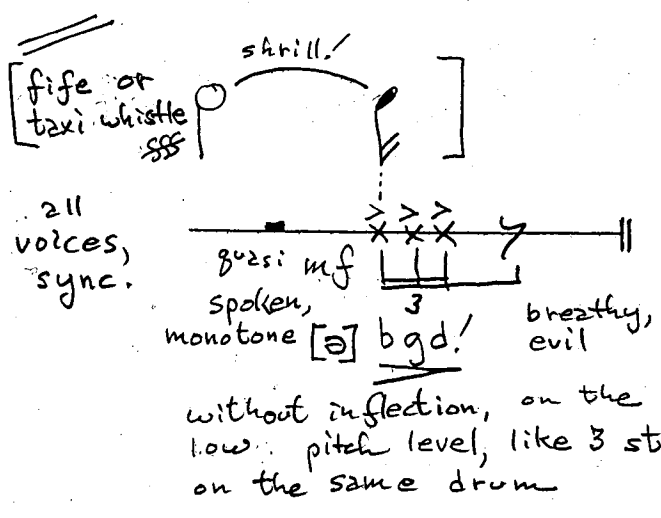 shrill!
[fife or
taxi whistle]
sffz
all
voices,
sync.
> > >
quasi mf
spoken,
monotone [ə] bgd!
3
breathy,
evil
without inflection, on the
low pitch level, like 3 st
on the same drum